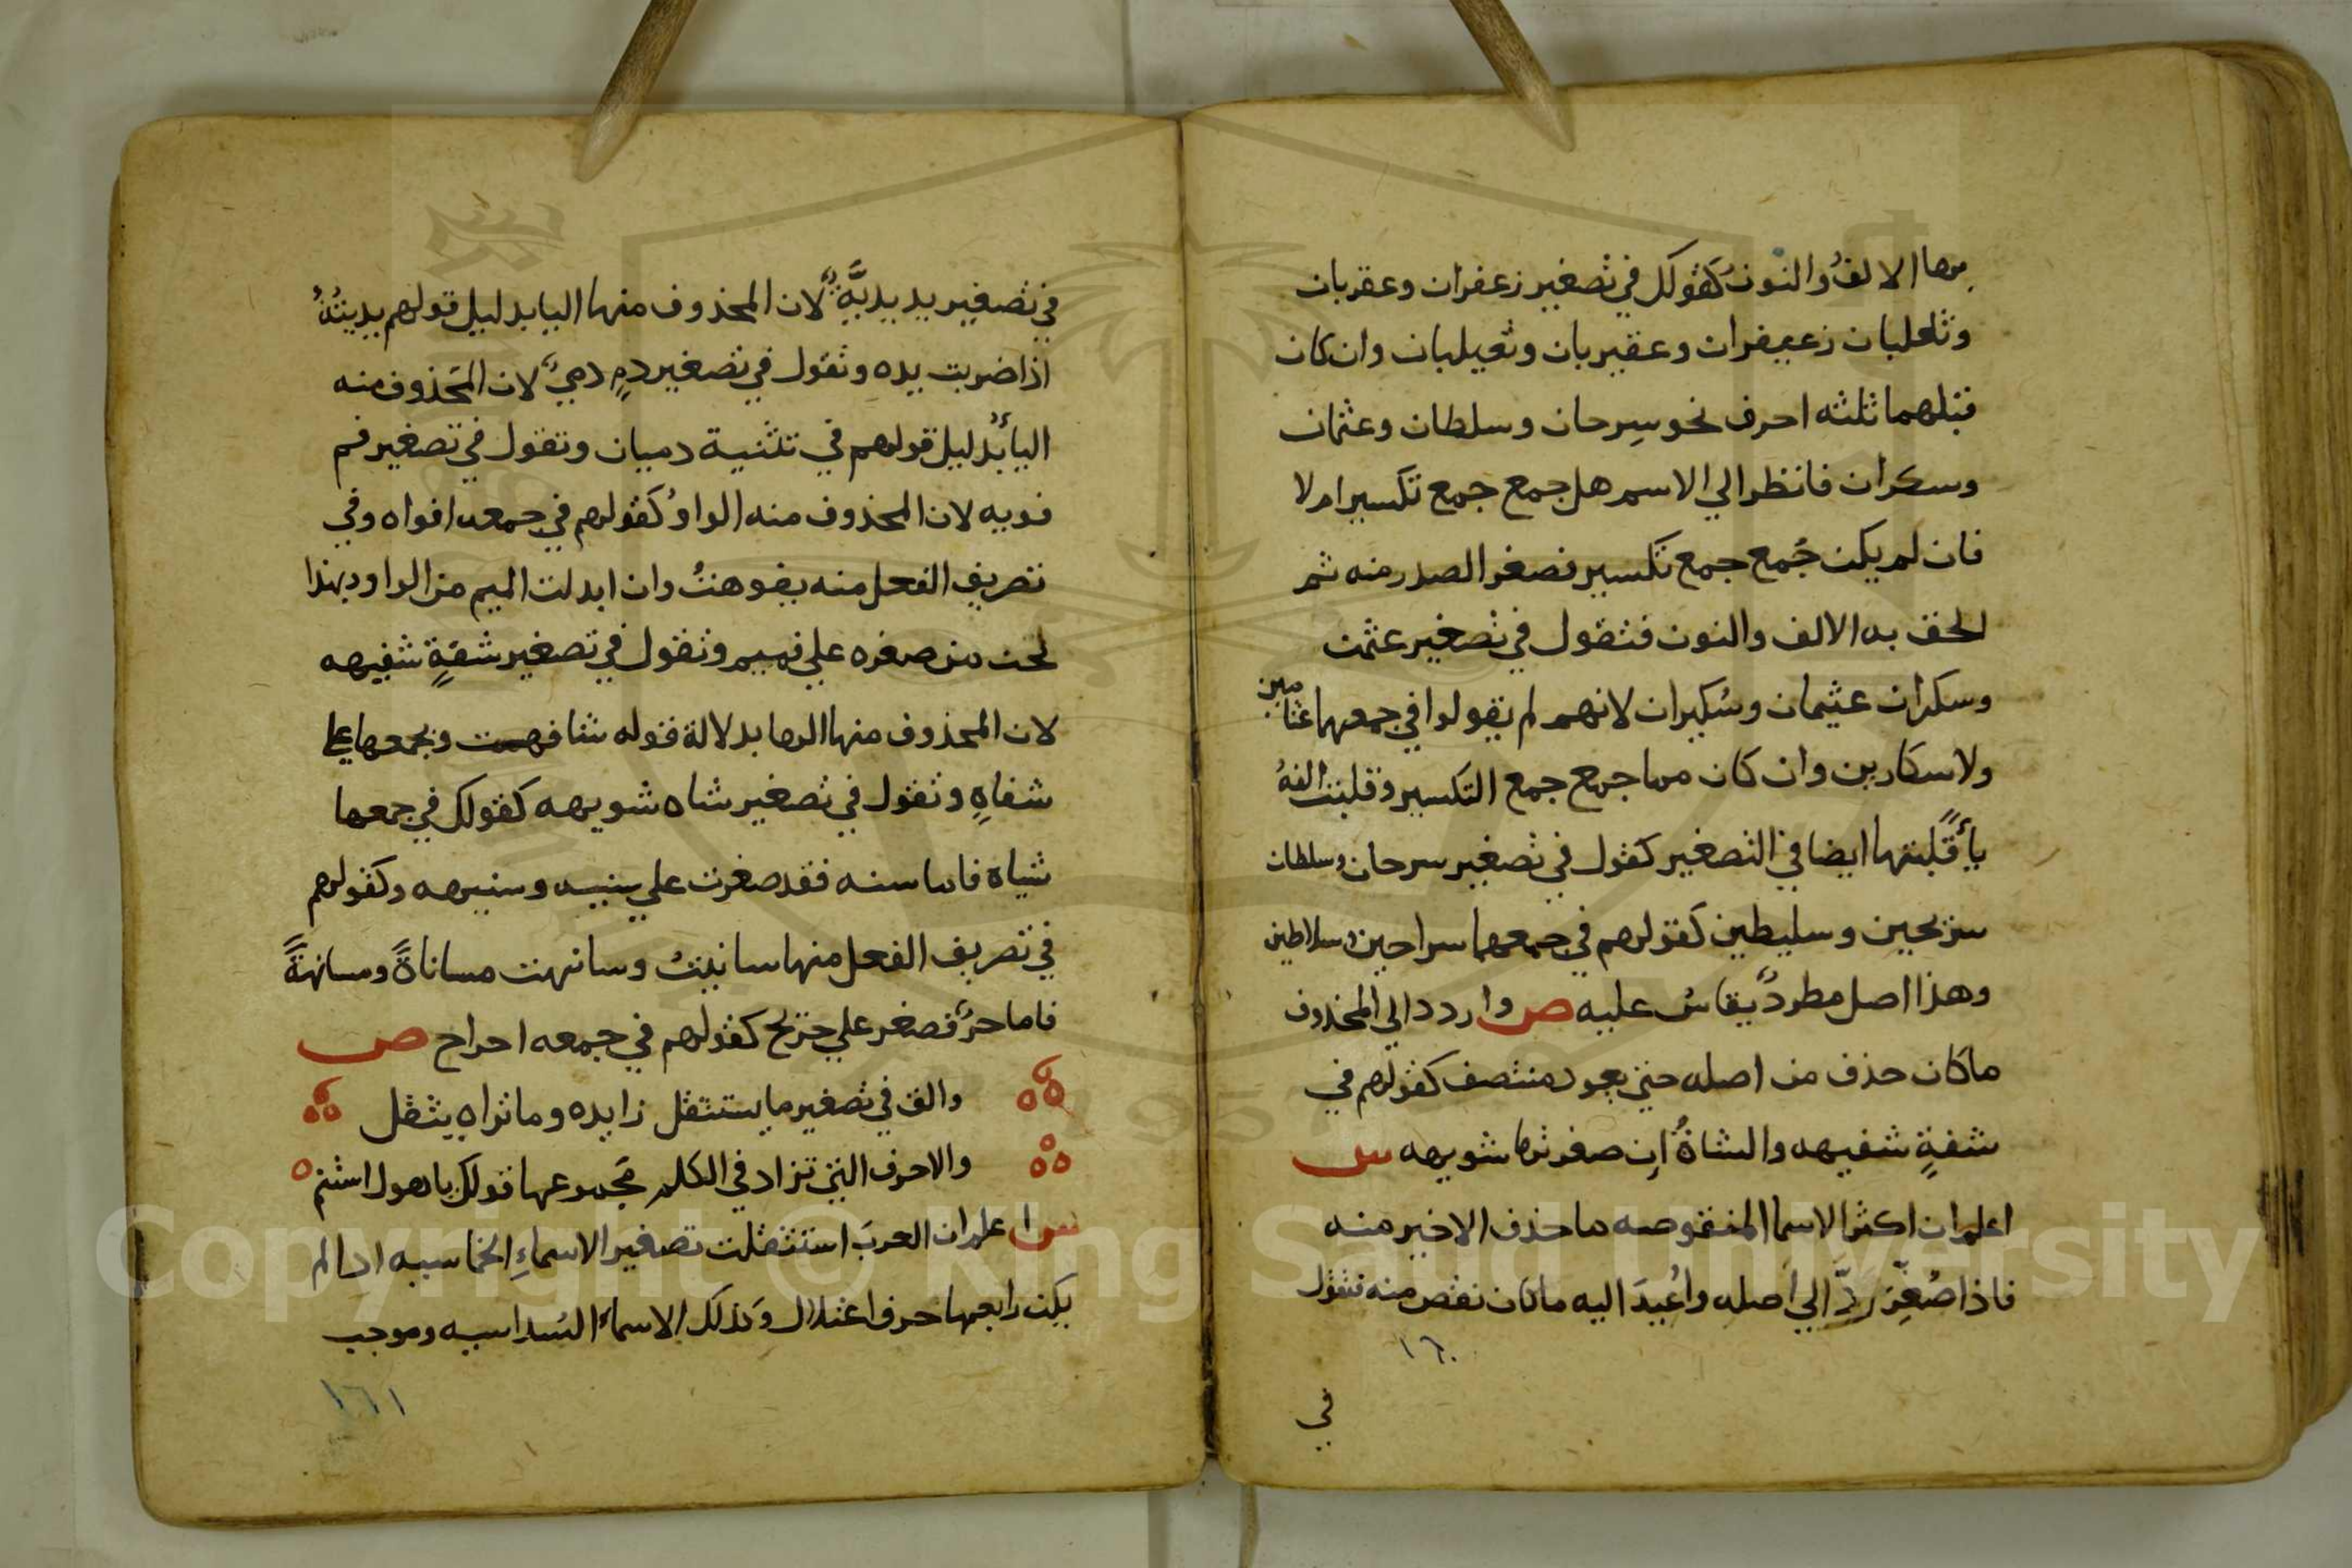 بهما الالفُ والنونُ كقولك في تصغير زعفران وعقربان
وثعلبان زعيفران وعقيربان وثعيلبان وان كان
قبلهما ثلثه احرف نحو سِرحان وسلطان وعثمان
وسكران فانظر الي الاسم هل جمع جمع تكسير ام لا
فان لم يكن جُمع جمع تكسير فصغر الصدر منه ثم
الحق به الالف والنون فتقول في تصغير عثمن
وسكران عثيمان وسُكيران لانهم لم يقولوا في جمعهما عثامين
ولا سكارين وان كان مما جمع جمع التكسير وقلبت الفهُ
يأً قلبتها ايضا في التصغير كقول في تصغير سرحان وسلطان
سريحين وسليطين كقولهم في جمعهما سراحين وسلاطين
وهذا اصل مطردٌ يقاسُ عليه ص واردد الي المحذوف
ما كان حذف من اصله حتي يعود منتصف كقولهم في
شفةٍ شفيهه والشاةُ ان صغرتها شويهه س
اعلم ان اكثر الاسما المنقوصه ما حذف الاخير منه
فاذا صُغِّر ردّ الي اصله واُعيدَ اليه ما كان نقص منه فتقول
١٦٠
في
في تصغير يد يديَّةٌ لان المحذوف منها اليا بدليل قولهم يديتُهُ
اذا ضربت يده وتقول في تصغير دمٍ دميٌ لان المحذوف منه
اليأ بدليل قولهم في تثنية دميان وتقول في تصغير فم
فويه لان المحذوف منه الواو كقولهم في جمعه افواه وفي
تصريف الفعل منه بفوهتُ وان ابدلت الميم من الواو وبهذا
لحن من صغره علي فميم وتقول في تصغير شفةٍ شفيهه
لان المحذوف منها الها بدلالة قوله شافهت وبجمعها علي
شفاهٍ وتقول في تصغير شاه شويهه كقولك في جمعها
شياه فاما سنه فقد صغرت علي سنيه وسنيهه وكقولهم
في تصريف الفعل منها سانيتُ وسانهت مساناةً ومسانهةً
فاما حرٌ فصغر علي حريح كقولهم في جمعه احراح ص
والق في تصغير ما يستثقل زايده وما تراه يثقل
والاحرف التي تزاد في الكلم مجموعها قولك يا هول استنم
س اعلم ان العربَ استثقلت تصغير الاسماءِ الخماسيه اذا لم
يكن رابعها حرف اعتلال وكذلك الاسماء السداسيه وموجب
١٦١